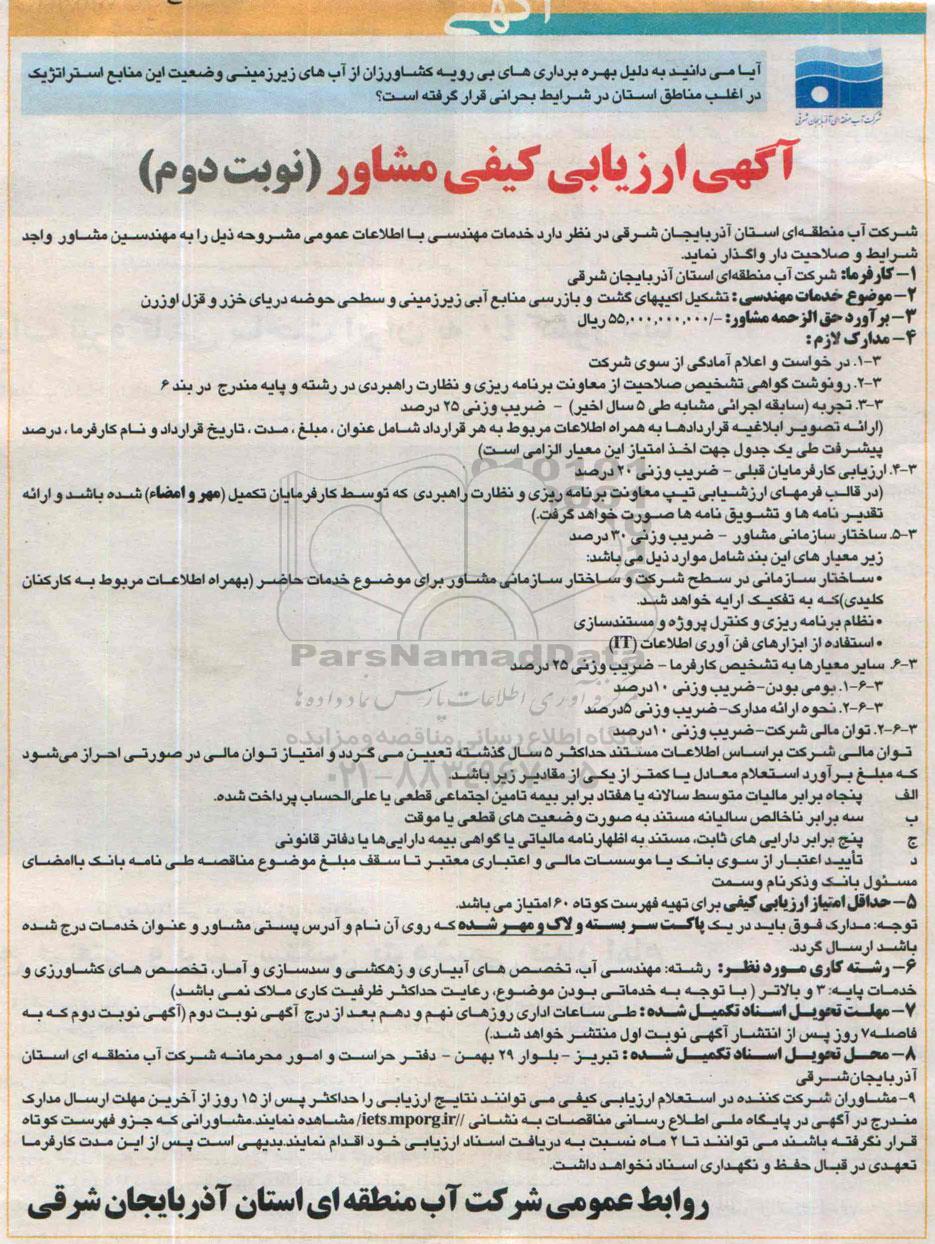 آگهی
آیا می دانید به دلیل بهره برداری های بی رویه کشاورزان از آب های زیرزمینی وضعیت این منابع استراتژیک
در اغلب مناطق استان در شرایط بحرانی قرار گرفته است؟
شرکت آب منطقه ای آذربایجان شرقی
آگهی ارزیابی کیفی مشاور (نوبت دوم)
شرکت آب منطقه‌ای استان آذربایجان شرقی در نظر دارد خدمات مهندسی با اطلاعات عمومی مشروحه ذیل را به مهندسین مشاور واجد
شرایط و صلاحیت دار واگذار نماید.
۱– کارفرما: شرکت آب منطقه‌ای استان آذربایجان شرقی
۲– موضوع خدمات مهندسی: تشکیل اکیپهای گشت و بازرسی منابع آبی زیرزمینی و سطحی حوضه دریای خزر و قزل اوزرن
۳– برآورد حق الزحمه مشاور: –/۵۵,۰۰۰,۰۰۰,۰۰۰ ریال
۴– مدارک لازم:
۳–۱. در خواست و اعلام آمادگی از سوی شرکت
۳–۲. رونوشت گواهی تشخیص صلاحیت از معاونت برنامه ریزی و نظارت راهبردی در رشته و پایه مندرج در بند ۶
۳–۳. تجربه (سابقه اجرائی مشابه طی ۵ سال اخیر) – ضریب وزنی ۲۵ درصد
(ارائه تصویر ابلاغیه قراردادها به همراه اطلاعات مربوط به هر قرارداد شامل عنوان ، مبلغ ، مدت ، تاریخ قرارداد و نام کارفرما ، درصد
پیشرفت طی یک جدول جهت اخذ امتیاز این معیار الزامی است)
۳–۴. ارزیابی کارفرمایان قبلی – ضریب وزنی ۲۰ درصد
(در قالب فرمهای ارزشیابی تیپ معاونت برنامه ریزی و نظارت راهبردی که توسط کارفرمایان تکمیل (مهر و امضاء) شده باشد و ارائه
تقدیر نامه ها و تشویق نامه ها صورت خواهد گرفت.)
۳–۵. ساختار سازمانی مشاور – ضریب وزنی ۳۰ درصد
زیر معیار های این بند شامل موارد ذیل می باشد:
• ساختار سازمانی در سطح شرکت و ساختار سازمانی مشاور برای موضوع خدمات حاضر (بهمراه اطلاعات مربوط به کارکنان
کلیدی)که به تفکیک ارایه خواهد شد.
• نظام برنامه ریزی و کنترل پروژه و مستندسازی
• استفاده از ابزارهای فن آوری اطلاعات (IT)
ParsNamadData
۳–۶. سایر معیارها به تشخیص کارفرما – ضریب وزنی ۲۵ درصد
۳–۶–۱. بومی بودن–ضریب وزنی ۱۰درصد
مرکز فرآوری اطلاعات پارس نماد داده ها
۳–۶–۲. نحوه ارائه مدارک–ضریب وزنی ۵درصد
۳–۶–۲. توان مالی شرکت–ضریب وزنی ۱۰درصد
پایگاه اطلاع رسانی مناقصه و مزایده
توان مالی شرکت براساس اطلاعات مستند حداکثر ۵ سال گذشته تعیین می گردد و امتیاز توان مالی در صورتی احراز می‌شود
که مبلغ برآورد استعلام معادل یا کمتر از یکی از مقادیر زیر باشد
۰۲۱–۸۸۳۴۹۶۷۰–۵
الف پنجاه برابر مالیات متوسط سالانه یا هفتاد برابر بیمه تامین اجتماعی قطعی یا علی‌الحساب پرداخت شده.
ب سه برابر ناخالص سالیانه مستند به صورت وضعیت های قطعی یا موقت
ج پنج برابر دارایی های ثابت، مستند به اظهارنامه مالیاتی یا گواهی بیمه دارایی‌ها یا دفاتر قانونی
د تأیید اعتبار از سوی بانک یا موسسات مالی و اعتباری معتبر تا سقف مبلغ موضوع مناقصه طی نامه بانک باامضای
مسئول بانک وذکرنام وسمت
۵– حداقل امتیاز ارزیابی کیفی برای تهیه فهرست کوتاه ۶۰ امتیاز می باشد.
توجه: مدارک فوق باید در یک پاکت سر بسته و لاک و مهر شده که روی آن نام و آدرس پستی مشاور و عنوان خدمات درج شده
باشد ارسال گردد.
۶– رشته کاری مورد نظر: رشته: مهندسی آب، تخصص های آبیاری و زهکشی و سدسازی و آمار، تخصص های کشاورزی و
خدمات پایه: ۳ و بالاتر ( با توجه به خدماتی بودن موضوع، رعایت حداکثر ظرفیت کاری ملاک نمی باشد)
۷– مهلت تحویل اسناد تکمیل شده: طی ساعات اداری روزهای نهم و دهم بعد از درج آگهی نوبت دوم (آگهی نوبت دوم که به
فاصله۷ روز پس از انتشار آگهی نوبت اول منتشر خواهد شد.)
۸– محل تحویل اسناد تکمیل شده: تبریز – بلوار ۲۹ بهمن – دفتر حراست و امور محرمانه شرکت آب منطقه ای استان
آذربایجان‌شرقی
۹– مشاوران شرکت کننده در استعلام ارزیابی کیفی می توانند نتایج ارزیابی را حداکثر پس از ۱۵ روز از آخرین مهلت ارسال مدارک
مندرج در آگهی در پایگاه ملی اطلاع رسانی مناقصات به نشانی //iets.mporg.ir/ مشاهده نمایند.مشاورانی که جزو فهرست کوتاه
قرار نگرفته باشند می توانند تا ۲ ماه نسبت به دریافت اسناد ارزیابی خود اقدام نمایند.بدیهی است پس از این مدت کارفرما
تعهدی در قبال حفظ و نگهداری اسناد نخواهد داشت.
روابط عمومی شرکت آب منطقه ای استان آذربایجان شرقی